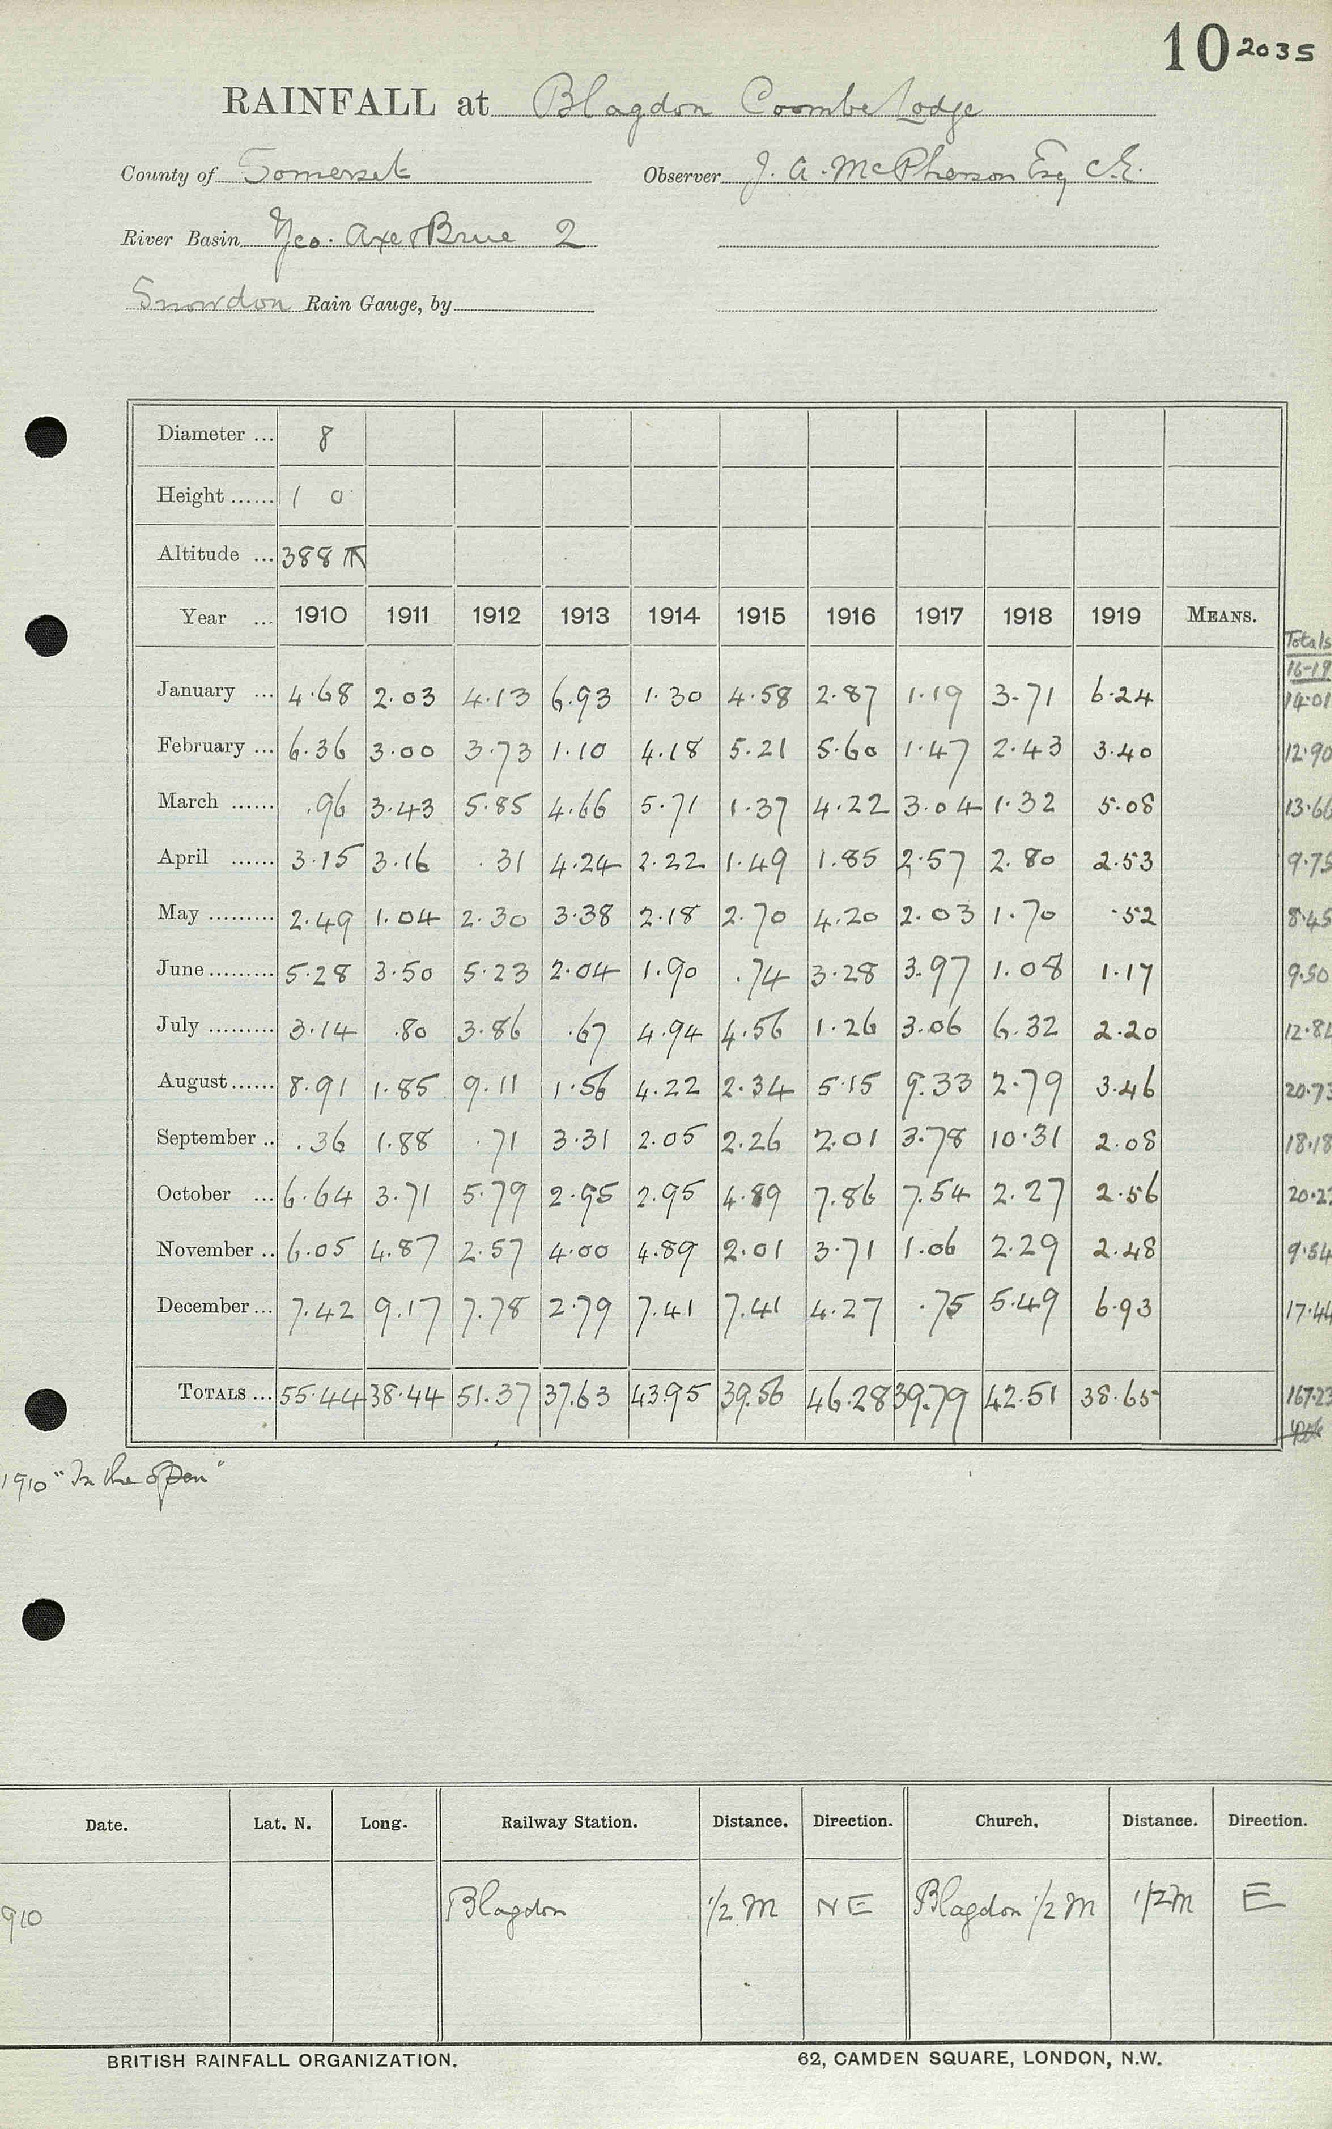 10 2035
RAINFALL at Blagdon Coombe Lodge
County of Somerset Observer J. A. McPherson Esq C.E.
River Basin Yeo. Axe & Brue 2
Snowdon Rain Gauge, by
Diameter ... 8
Height ...... 1 0
Altitude ... 388
Year ... 1910 1911 1912 1913 1914 1915 1916 1917 1918 1919 MEANS. Totals
16-19
January ... 4.68 2.03 4.13 6.93 1.30 4.58 2.87 1.19 3.71 6.24 14.01
February ... 6.36 3.00 3.73 1.10 4.18 5.21 5.60 1.47 2.43 3.40 12.90
March ...... .96 3.43 5.85 4.66 5.71 1.37 4.22 3.04 1.32 5.08 13.66
April ...... 3.15 3.16 .31 4.24 2.22 1.49 1.85 2.57 2.80 2.53 9.75
May ......... 2.49 1.04 2.30 3.38 2.18 2.70 4.20 2.03 1.70 .52 8.45
June ......... 5.28 3.50 5.23 2.04 1.90 .74 3.28 3.97 1.08 1.17 9.50
July ......... 3.14 .80 3.86 .67 4.94 4.56 1.26 3.06 6.32 2.20 12.84
August ...... 8.91 1.85 9.11 1.56 4.22 2.34 5.15 9.33 2.79 3.46 20.73
September .. .36 1.88 .71 3.31 2.05 2.26 2.01 3.78 10.31 2.08 18.18
October ... 6.64 3.71 5.79 2.95 2.95 4.89 7.86 7.54 2.27 2.56 20.23
November .. 6.05 4.87 2.57 4.00 4.89 2.01 3.71 1.06 2.29 2.48 9.54
December ... 7.42 9.17 7.78 2.79 7.41 7.41 4.27 .75 5.49 6.93 17.44
TOTALS ... 55.44 38.44 51.37 37.63 43.95 39.56 46.28 39.79 42.51 38.65 167.23
1910 "In the open"
Date. Lat. N. Long. Railway Station. Distance. Direction. Church. Distance. Direction.
910 Blagdon 1/2 M NE Blagdon 1/2 M 1/2 M E
BRITISH RAINFALL ORGANIZATION. 62, CAMDEN SQUARE, LONDON, N.W.